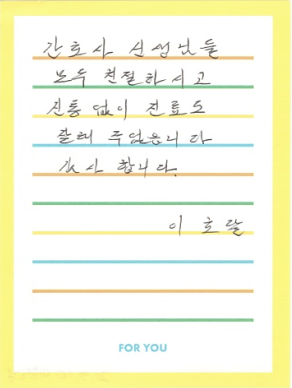 간호사 선생님들
모두 친절하시고
진통 없이 진료도
잘해 주었읍니다
감사 합니다.
이 호 달
FOR YOU